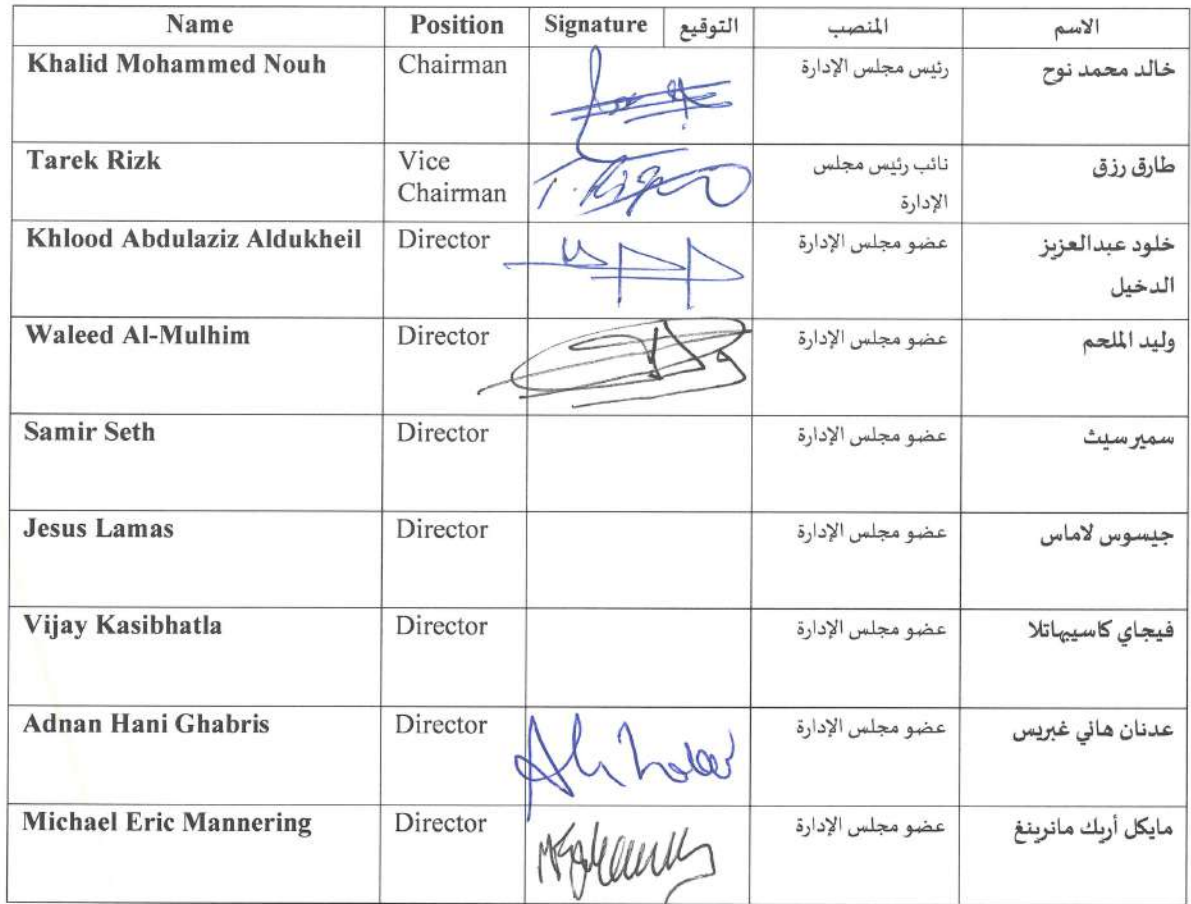 Name Position Signature التوقيع المنصب الاسم
Khalid Mohammed Nouh Chairman رئيس مجلس الإدارة خالد محمد نوح
Tarek Rizk Vice Chairman نائب رئيس مجلس الإدارة طارق رزق
Khlood Abdulaziz Aldukheil Director عضو مجلس الإدارة خلود عبدالعزيز الدخيل
Waleed Al-Mulhim Director عضو مجلس الإدارة وليد الملحم
Samir Seth Director عضو مجلس الإدارة سمير سيث
Jesus Lamas Director عضو مجلس الإدارة جيسوس لاماس
Vijay Kasibhatla Director عضو مجلس الإدارة فيجاي كاسيبهاتلا
Adnan Hani Ghabris Director عضو مجلس الإدارة عدنان هاني غبريس
Michael Eric Mannering Director عضو مجلس الإدارة مايكل أريك مانرينغ